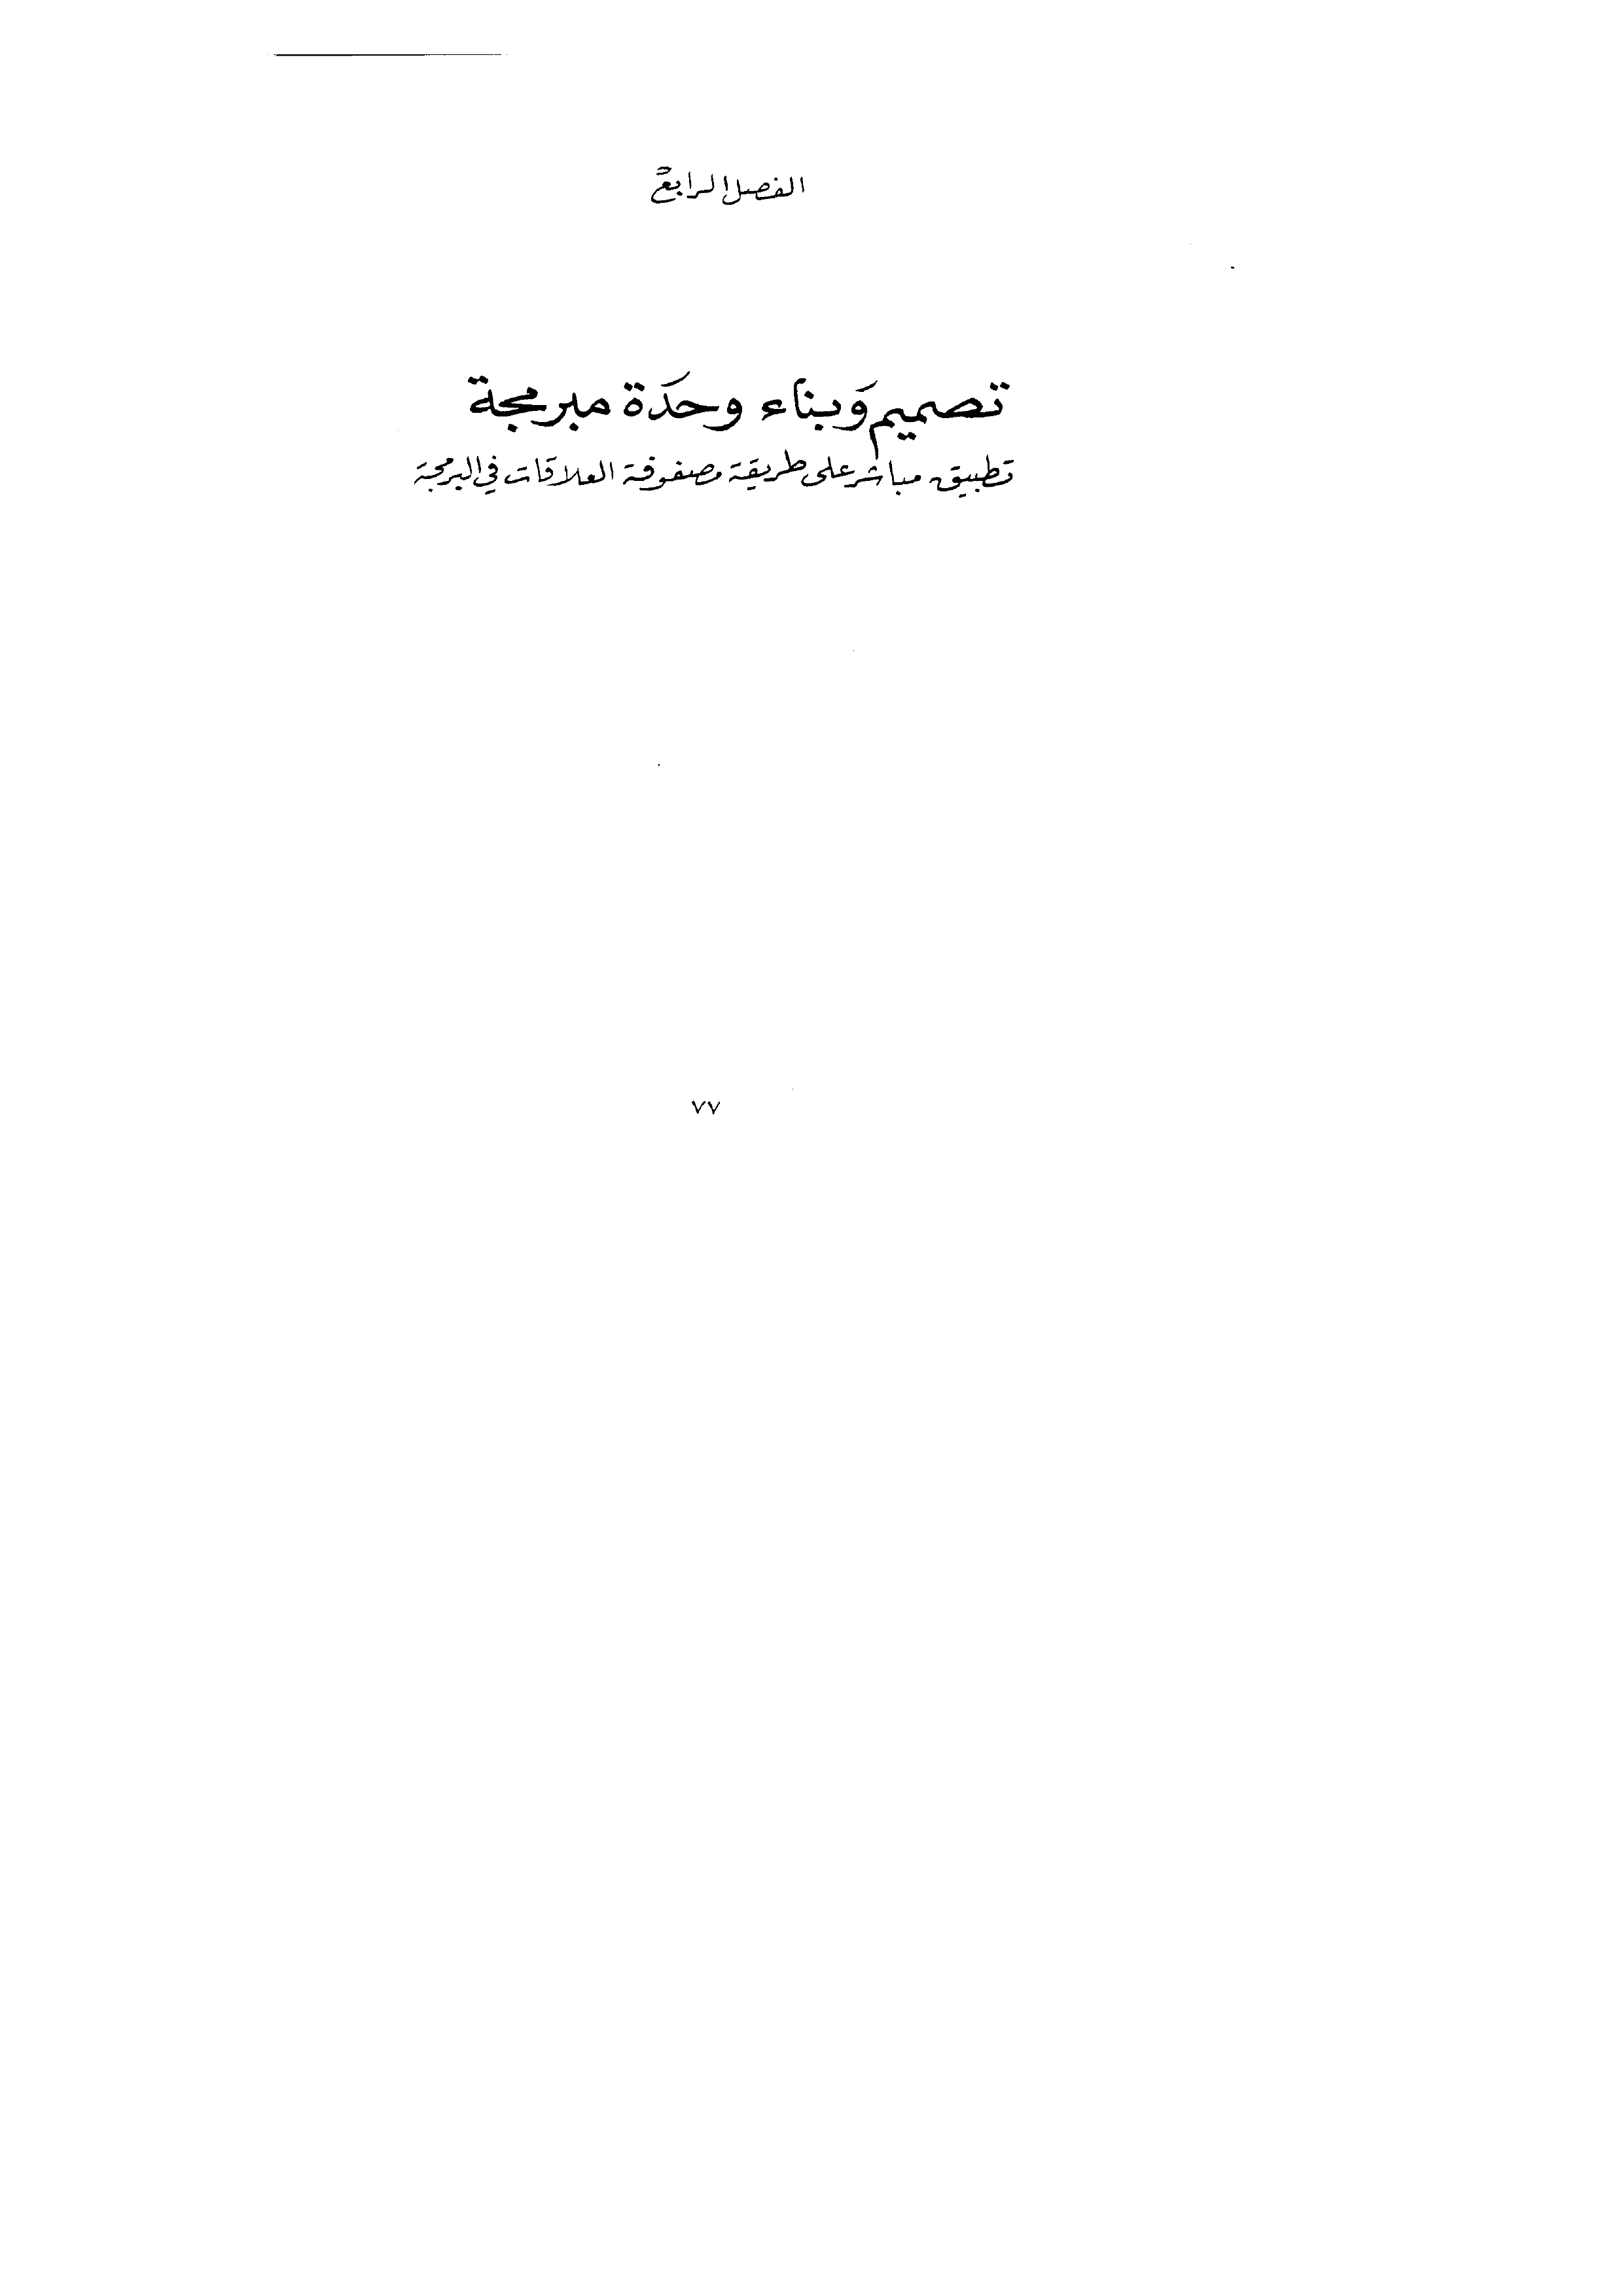 الفصل الرابع
تصميم وَبناء وحدَة مبرمجة
تطبيق مباشر على طريقة مصفوفة العلاقات في البرمجة
٧٧